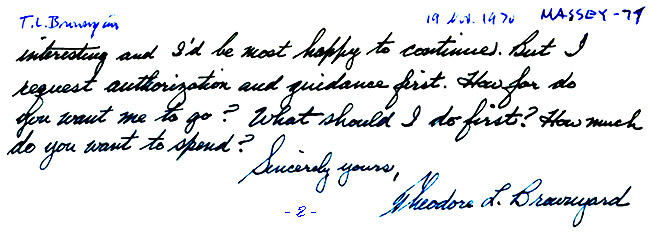 T. L. Brownyard 19 Nov. 1970 MASSEY-79
interesting and I'd be most happy to continue. But I
request authorization and guidance first. How far do
you want me to go? What should I do first? How much
do you want to spend?
Sincerely yours,
Theodore L. Brownyard
-2-